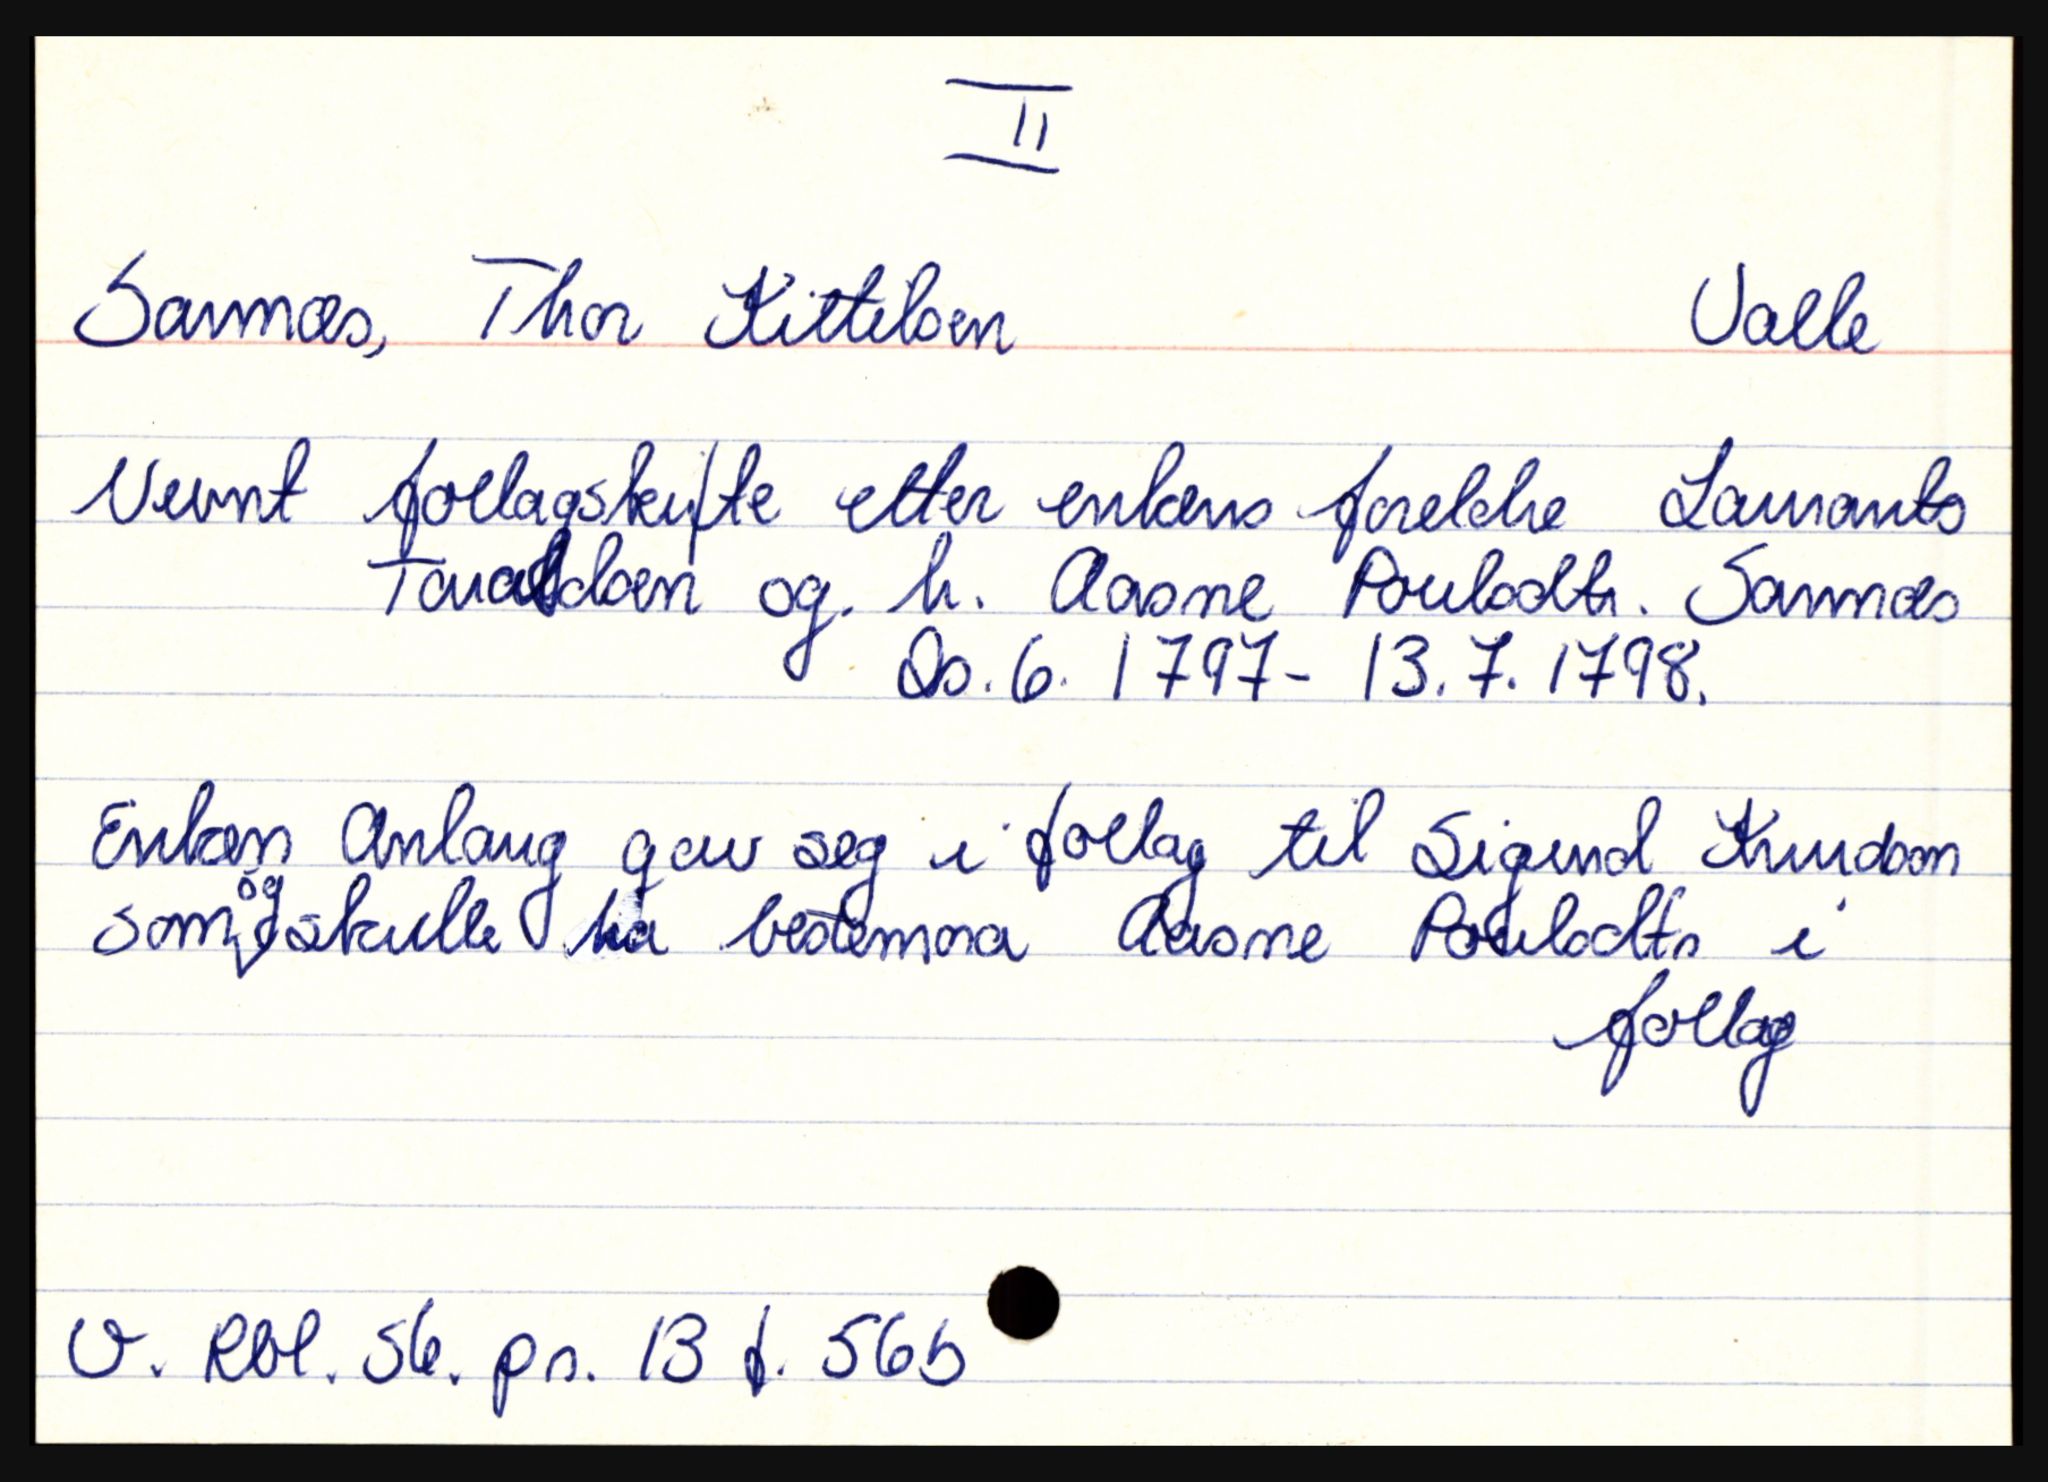 II
Sannæs, Thor Kittilsen Valle
Nevnt follagskifte etter enkens foreldre Laurants
Taraldsen og. h. Aasne Poulsdtr. Sannæs
Ds. 6. 1797- 13.7. 1798.
Enken Anlaug gav seg i follag til Sigund Knudson
som og skulle ha bestemora Aasne Poulsdtr i
follag
V. Rbl. Sk. pr. 13 f. 56b